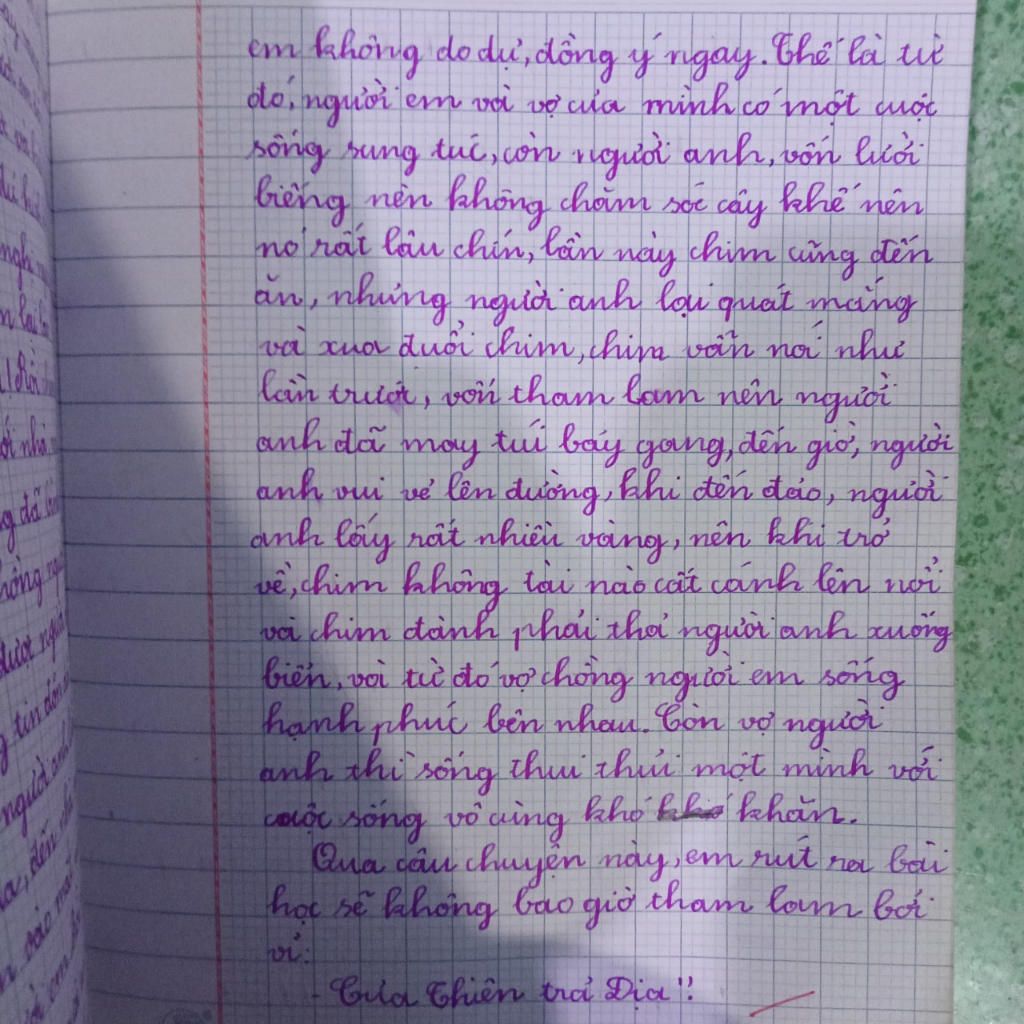 em không do dự, đồng ý ngay. Thế là từ
đó, người em và vợ của mình có một cuộc
sống sung túc, còn người anh, vốn lười
biếng nên không chăm sóc cây khế nên
nó rất lâu chín, lần này chim cũng đến
ăn, nhưng người anh lại quát mắng
và xua đuổi chim, chim vẫn nói như
lần trước, vốn tham lam nên người
anh đã may túi bảy gang, đến giờ, người
anh vui vẻ lên đường, khi đến đảo, người
anh lấy rất nhiều vàng, nên khi trở
về, chim không tài nào cất cánh lên nổi
và chim đành phải thả người anh xuống
biển, và từ đó vợ chồng người em sống
hạnh phúc bên nhau. Còn vợ người
anh thì sống thui thủi một mình với
cuộc sống vô cùng khó khăn.
Qua câu chuyện này, em rút ra bài
học sẽ không bao giờ tham lam bởi
vì:
- Của Thiên trả Địa"!